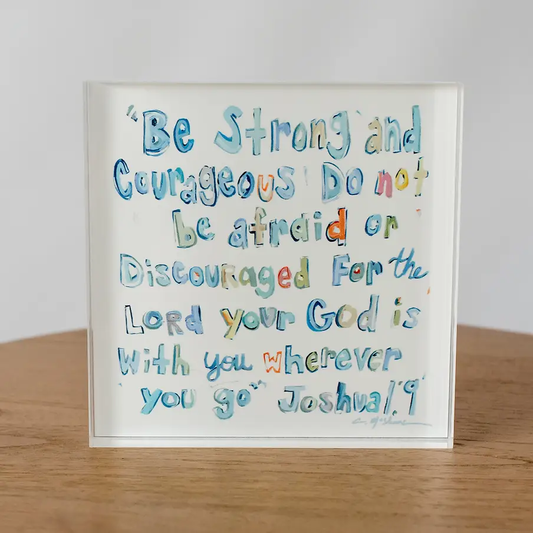 "Be Strong and
Courageous Do not
be afraid or
Discouraged For the
Lord your God is
with you wherever
you go" Joshua 1:9